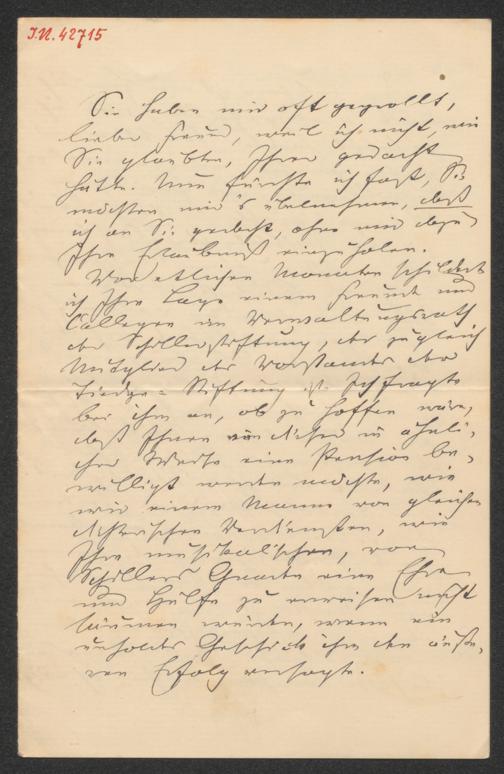 I.N. 42715
Sie haben mir oft gegrollt,
lieber Freund, weil ich nicht, wie
Sie glaubten, Ihrer gedacht
hätte. Nun fürchte ich fast, Sie
möchten mir's übelnehmen, daß
ich an Sie gedacht, ohne mir dazu
Ihre Erlaubniß einzuholen.
Vor etlichen Monaten schilderte
ich Ihre Lage einem Freunde und
Collegen im Verwaltungsrath
der Schillerstiftung, der zugleich
Mitglied des Vorstandes der
Tiedge-Stiftung ist. Ich fragte
bei ihm an, ob zu hoffen wäre,
daß Ihnen von dieser in ähnli-
cher Weise eine Pension be-
willigt werden möchte, wie
wir einem Manne von gleichen
dichterischen Verdiensten, wie
Ihre musikalischen, von
Schillers Gnaden eine Ehre
und Hülfe zu erweisen nicht
säumen würden, wenn ein
unholdes Geschick ihm den äuße-
ren Erfolg versagte.